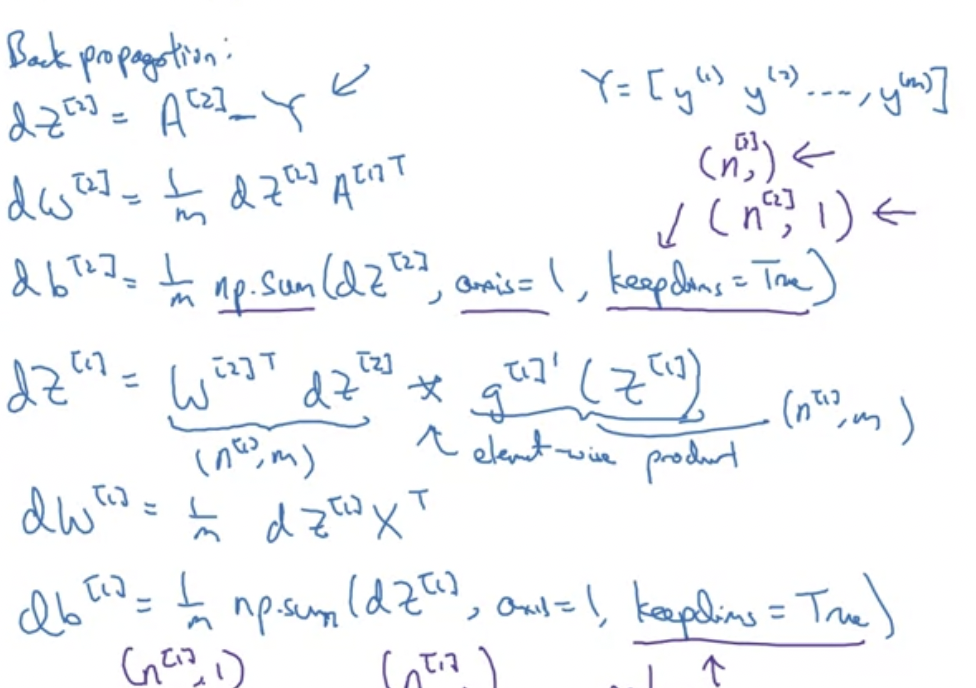 Back propagation:
dZ^[2] = A^[2] - Y
Y = [y^(1) y^(2) ..., y^(m)]
dW^[2] = 1/m dZ^[2] A^[1]T
(n^[2],) ←
↓ (n^[2], 1) ←
db^[2] = 1/m np.sum(dZ^[2], axis=1, keepdims=True)
dZ^[1] = W^[2]T dZ^[2] * g^[1]'(Z^[1])
(n^[1], m)
element-wise product
(n^[1], m)
dW^[1] = 1/m dZ^[1] X^T
db^[1] = 1/m np.sum(dZ^[1], axis=1, keepdims=True)
(n^[1], 1) (n^[1],)